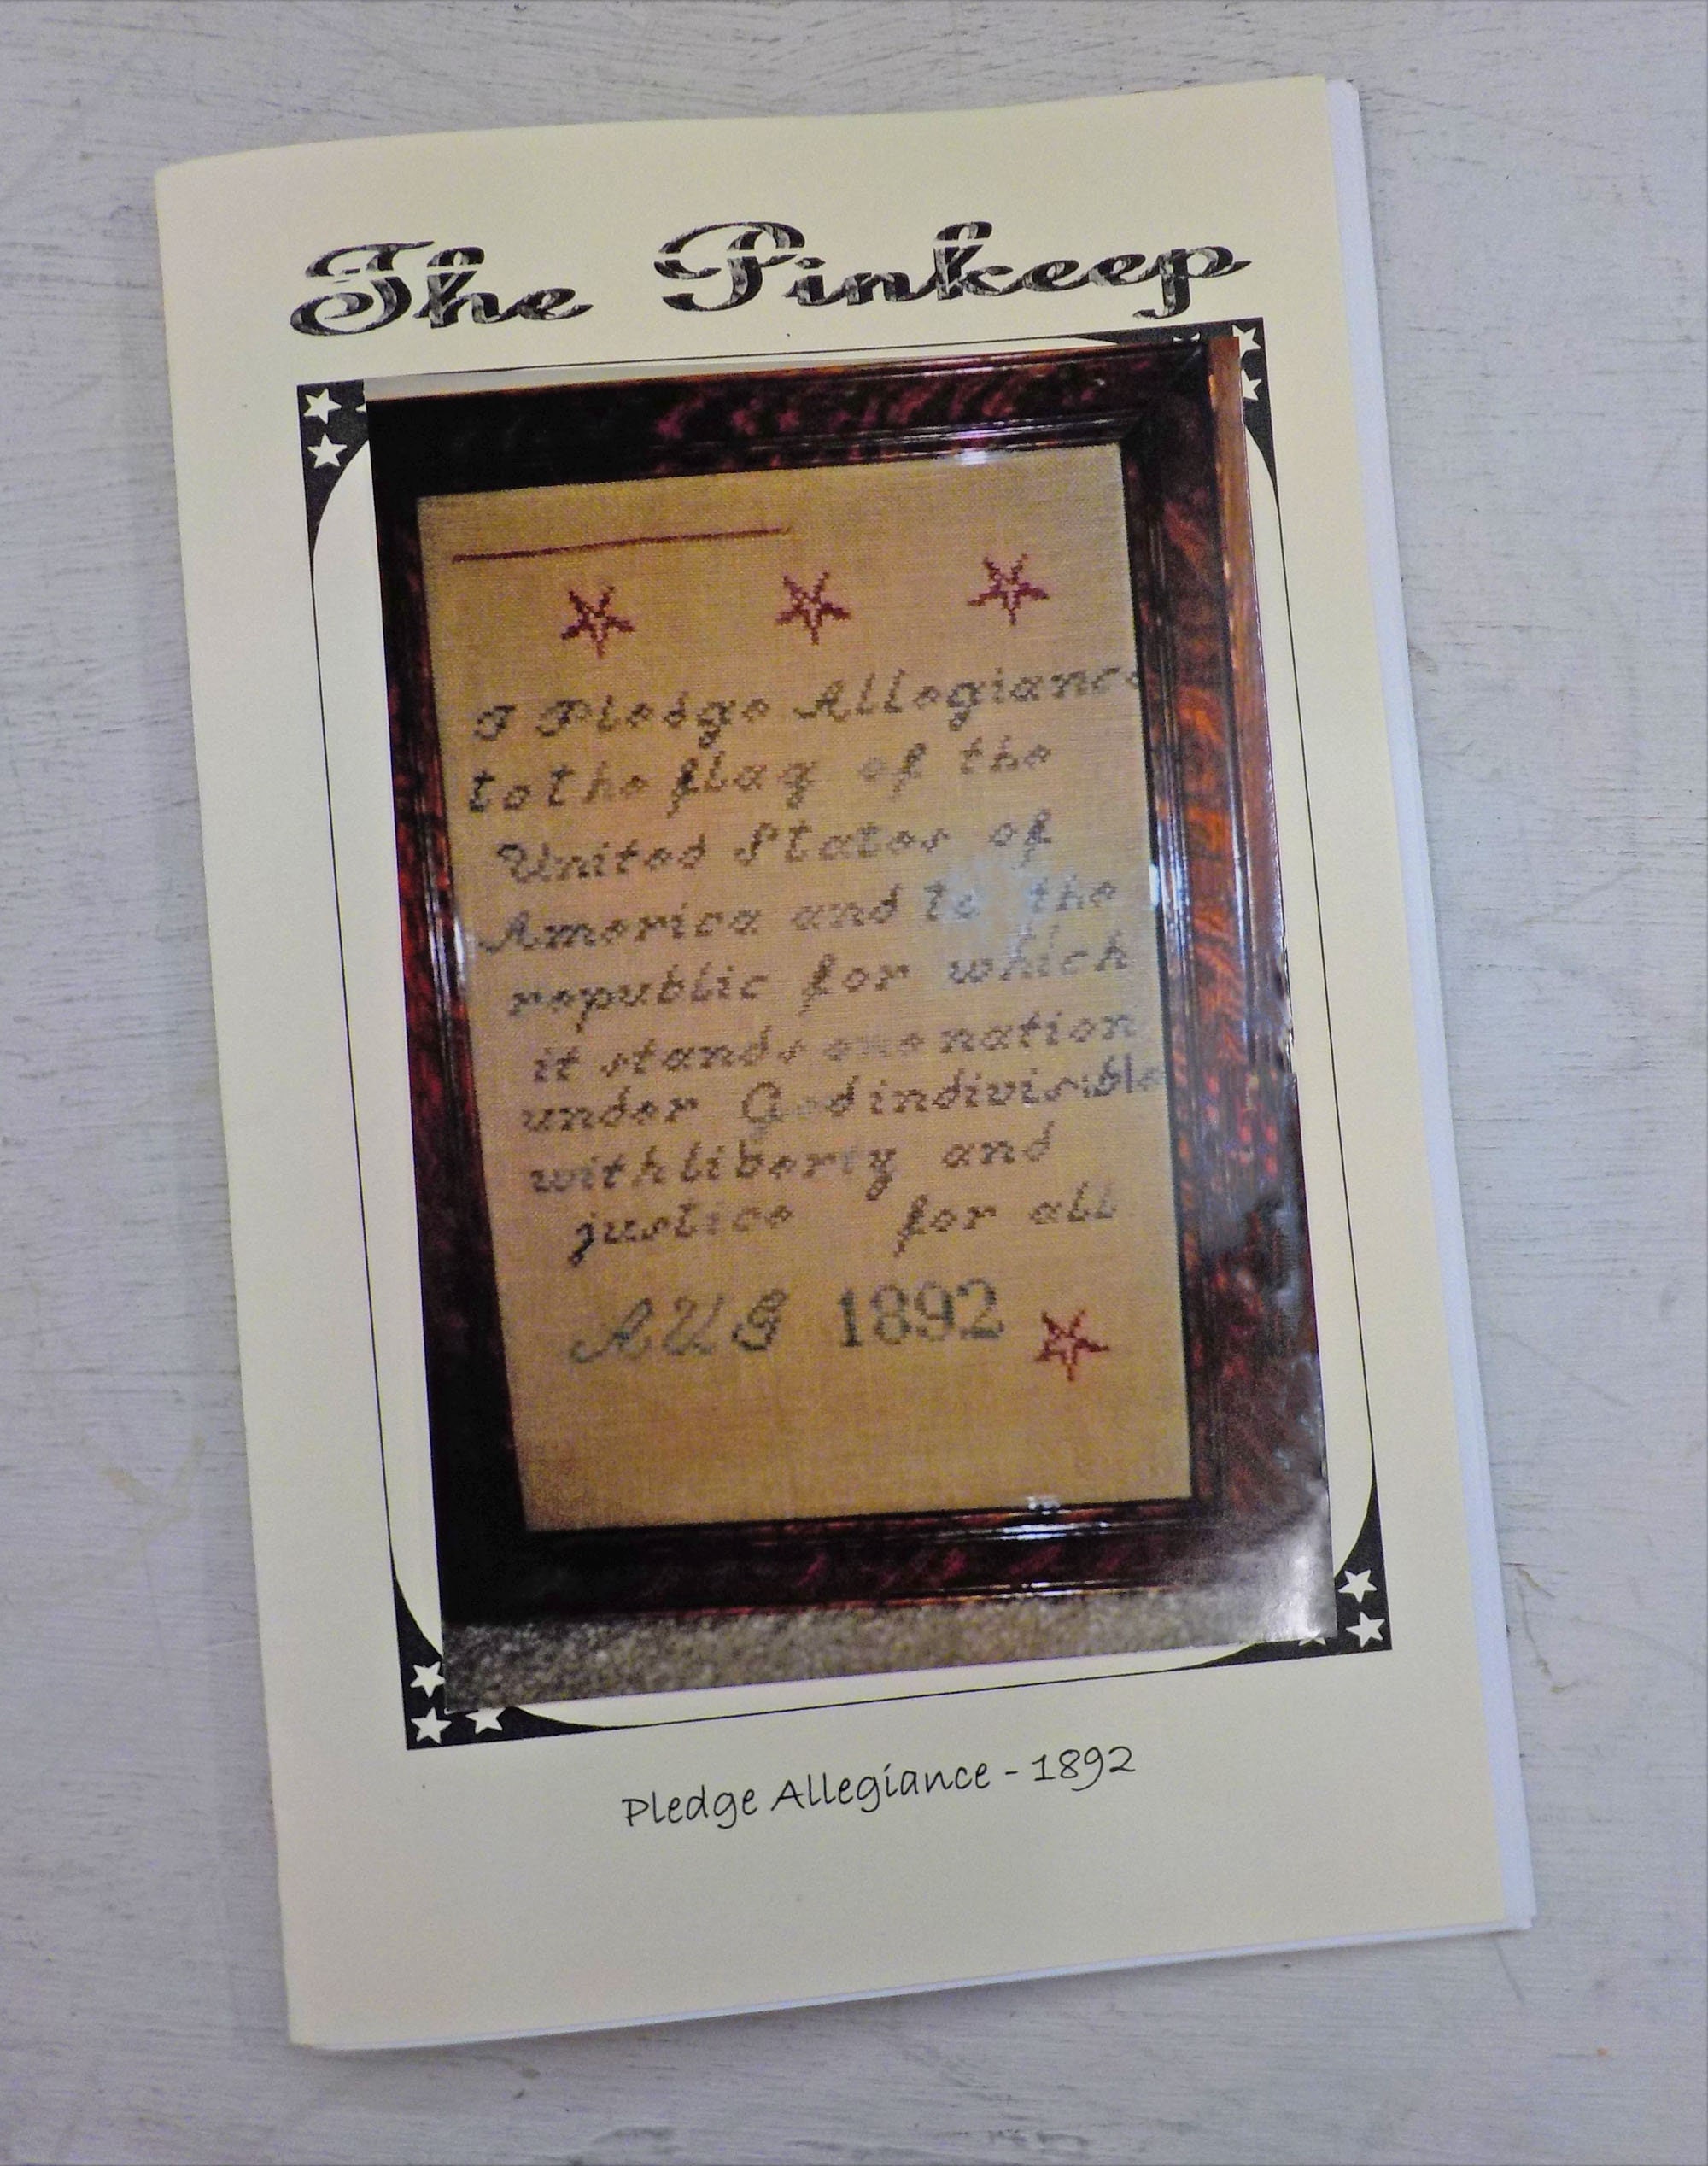 The Pinkeep
I Pledge Allegiance
to the flag of the
United States of
America and to the
republic for which
it stands one nation
under God indivisible
with liberty and
justice for all
AUG 1892
Pledge Allegiance - 1892